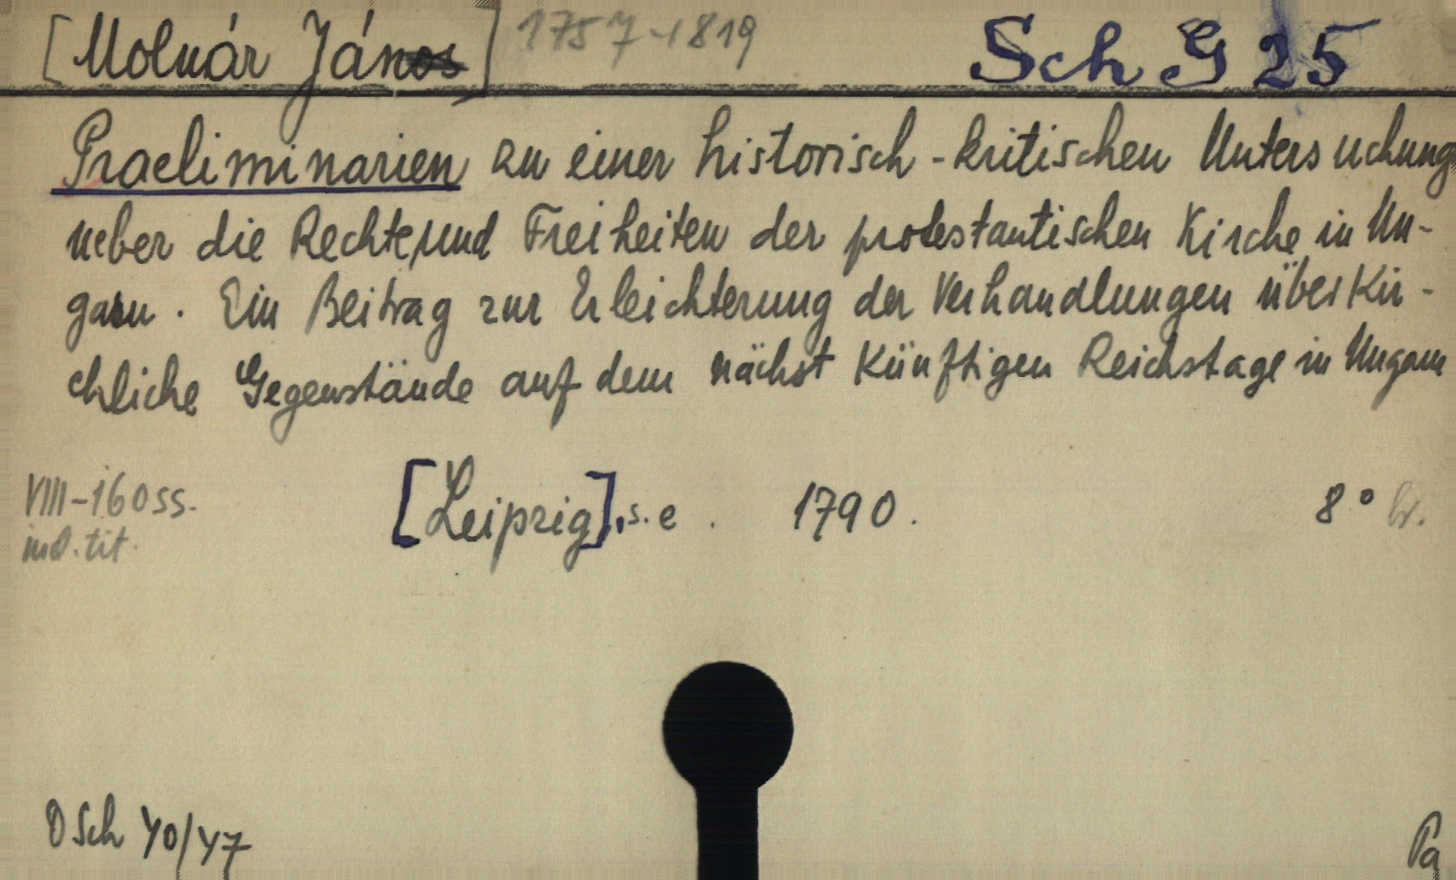 [Molnár János] 1757-1819 Sch G 25
Praeliminarien zu einer historisch-kritischen Untersuchung
ueber die Rechte und Freiheiten der protestantischen Kirche in Un-
garn. Ein Beitrag zur Erleichterung der Verhandlungen über Kir-
chliche Gegenstände auf dem nächst Künftigen Reichstage in Ungarn
VIII-160 ss. [Leipzig], s. e. 1790. 8°
ind. tit.
D Sch 40/47 Pa